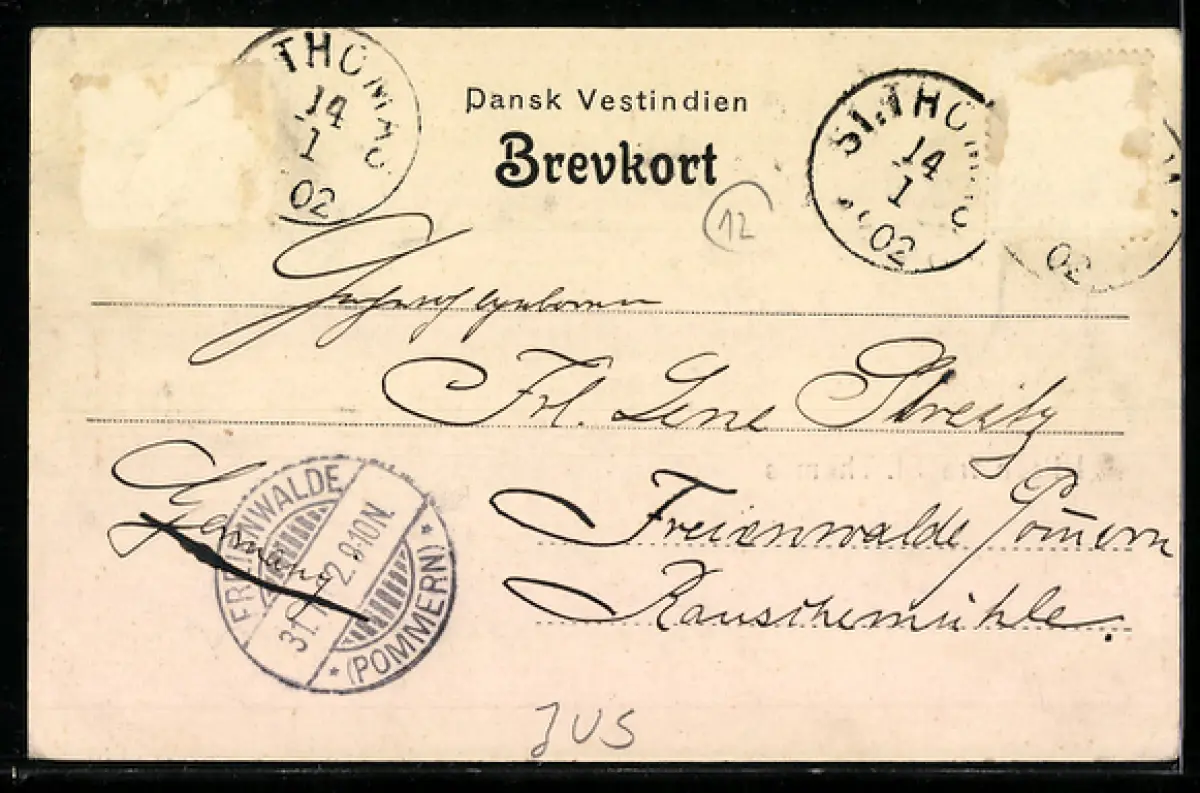 ST. THOMAS
14
1
02
Dansk Vestindien
Brevkort
ST. THOMAS
14
1
02
02
12
Hochwohlgeboren
Frl. Lene Streitz
Germany
Freienwalde Pom̄ern
Rauschemühle.
FREIENWALDE
31.1.02.8-10N.
* (POMMERN) *
JUS